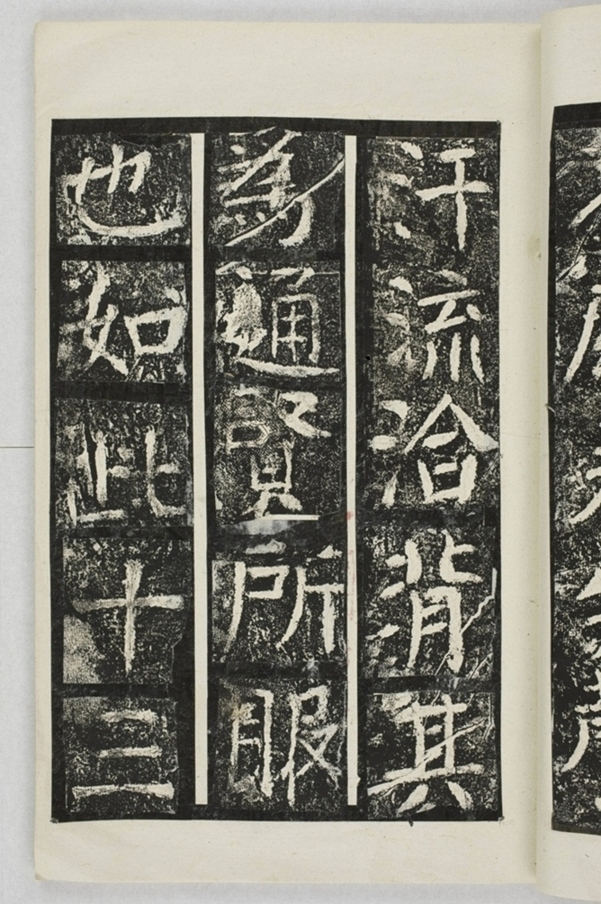 汗流洽背其
為通賢所服
也如此十三